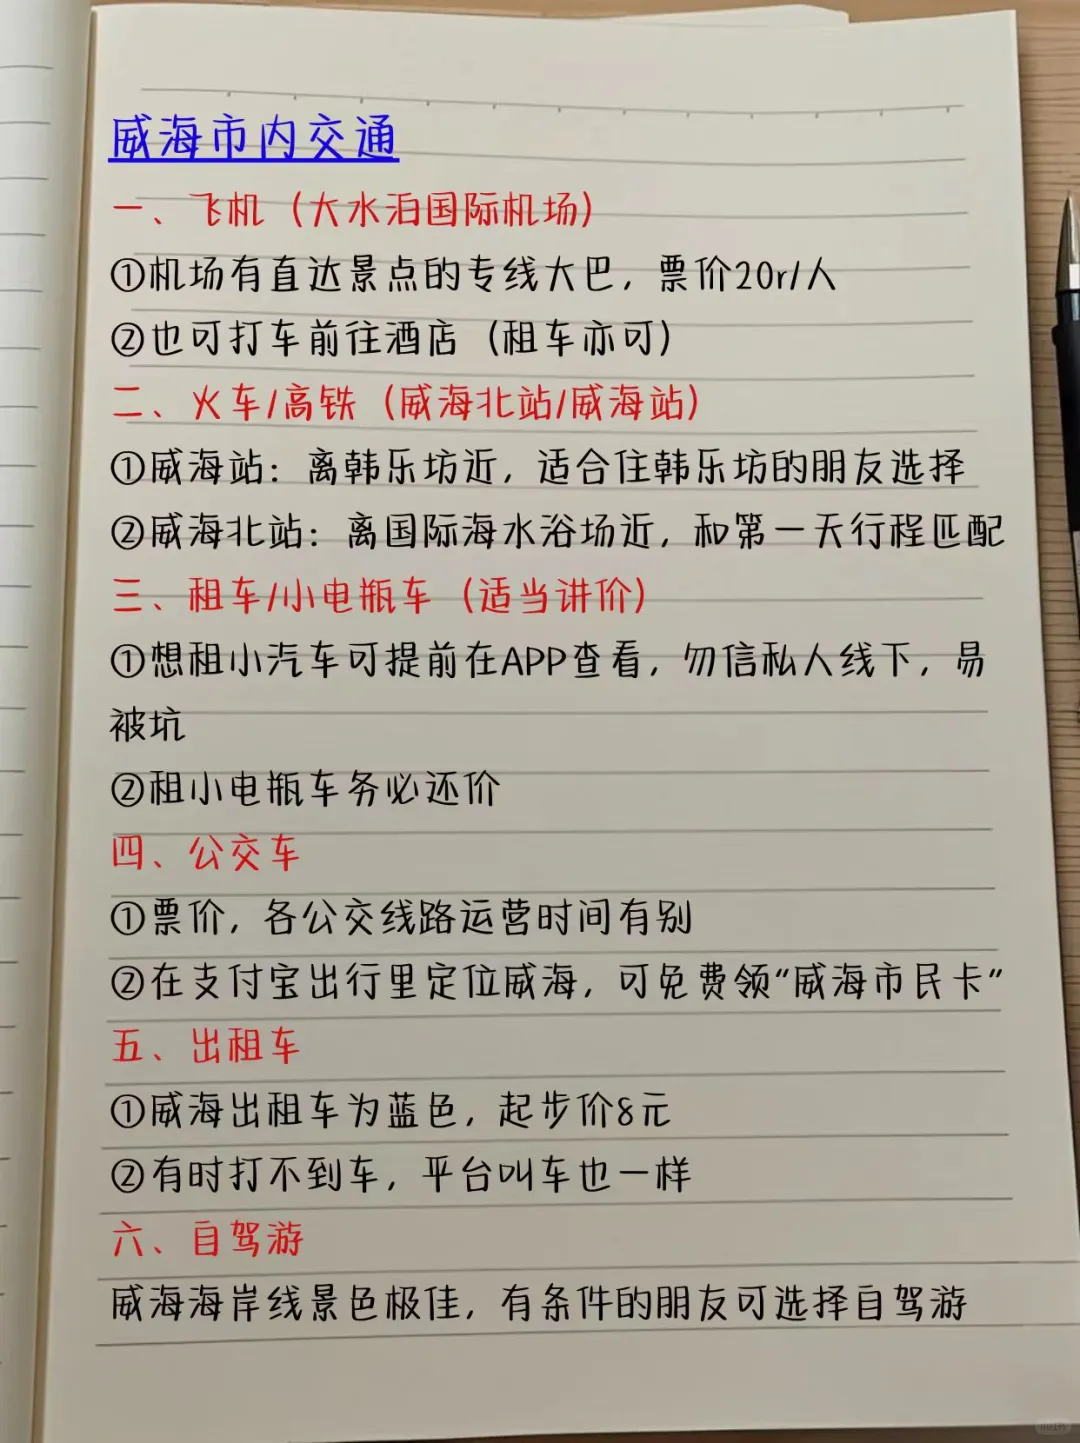 威海市内交通
一、飞机（大水泊国际机场）
①机场有直达景点的专线大巴，票价20r/人
②也可打车前往酒店（租车亦可）
二、火车/高铁（威海北站/威海站）
①威海站：离韩乐坊近，适合住韩乐坊的朋友选择
②威海北站：离国际海水浴场近，和第一天行程匹配
三、租车/小电瓶车（适当讲价）
①想租小汽车可提前在APP查看，勿信私人线下，易
被坑
②租小电瓶车务必还价
四、公交车
①票价，各公交线路运营时间有别
②在支付宝出行里定位威海，可免费领“威海市民卡”
五、出租车
①威海出租车为蓝色，起步价8元
②有时打不到车，平台叫车也一样
六、自驾游
威海海岸线景色极佳，有条件的朋友可选择自驾游